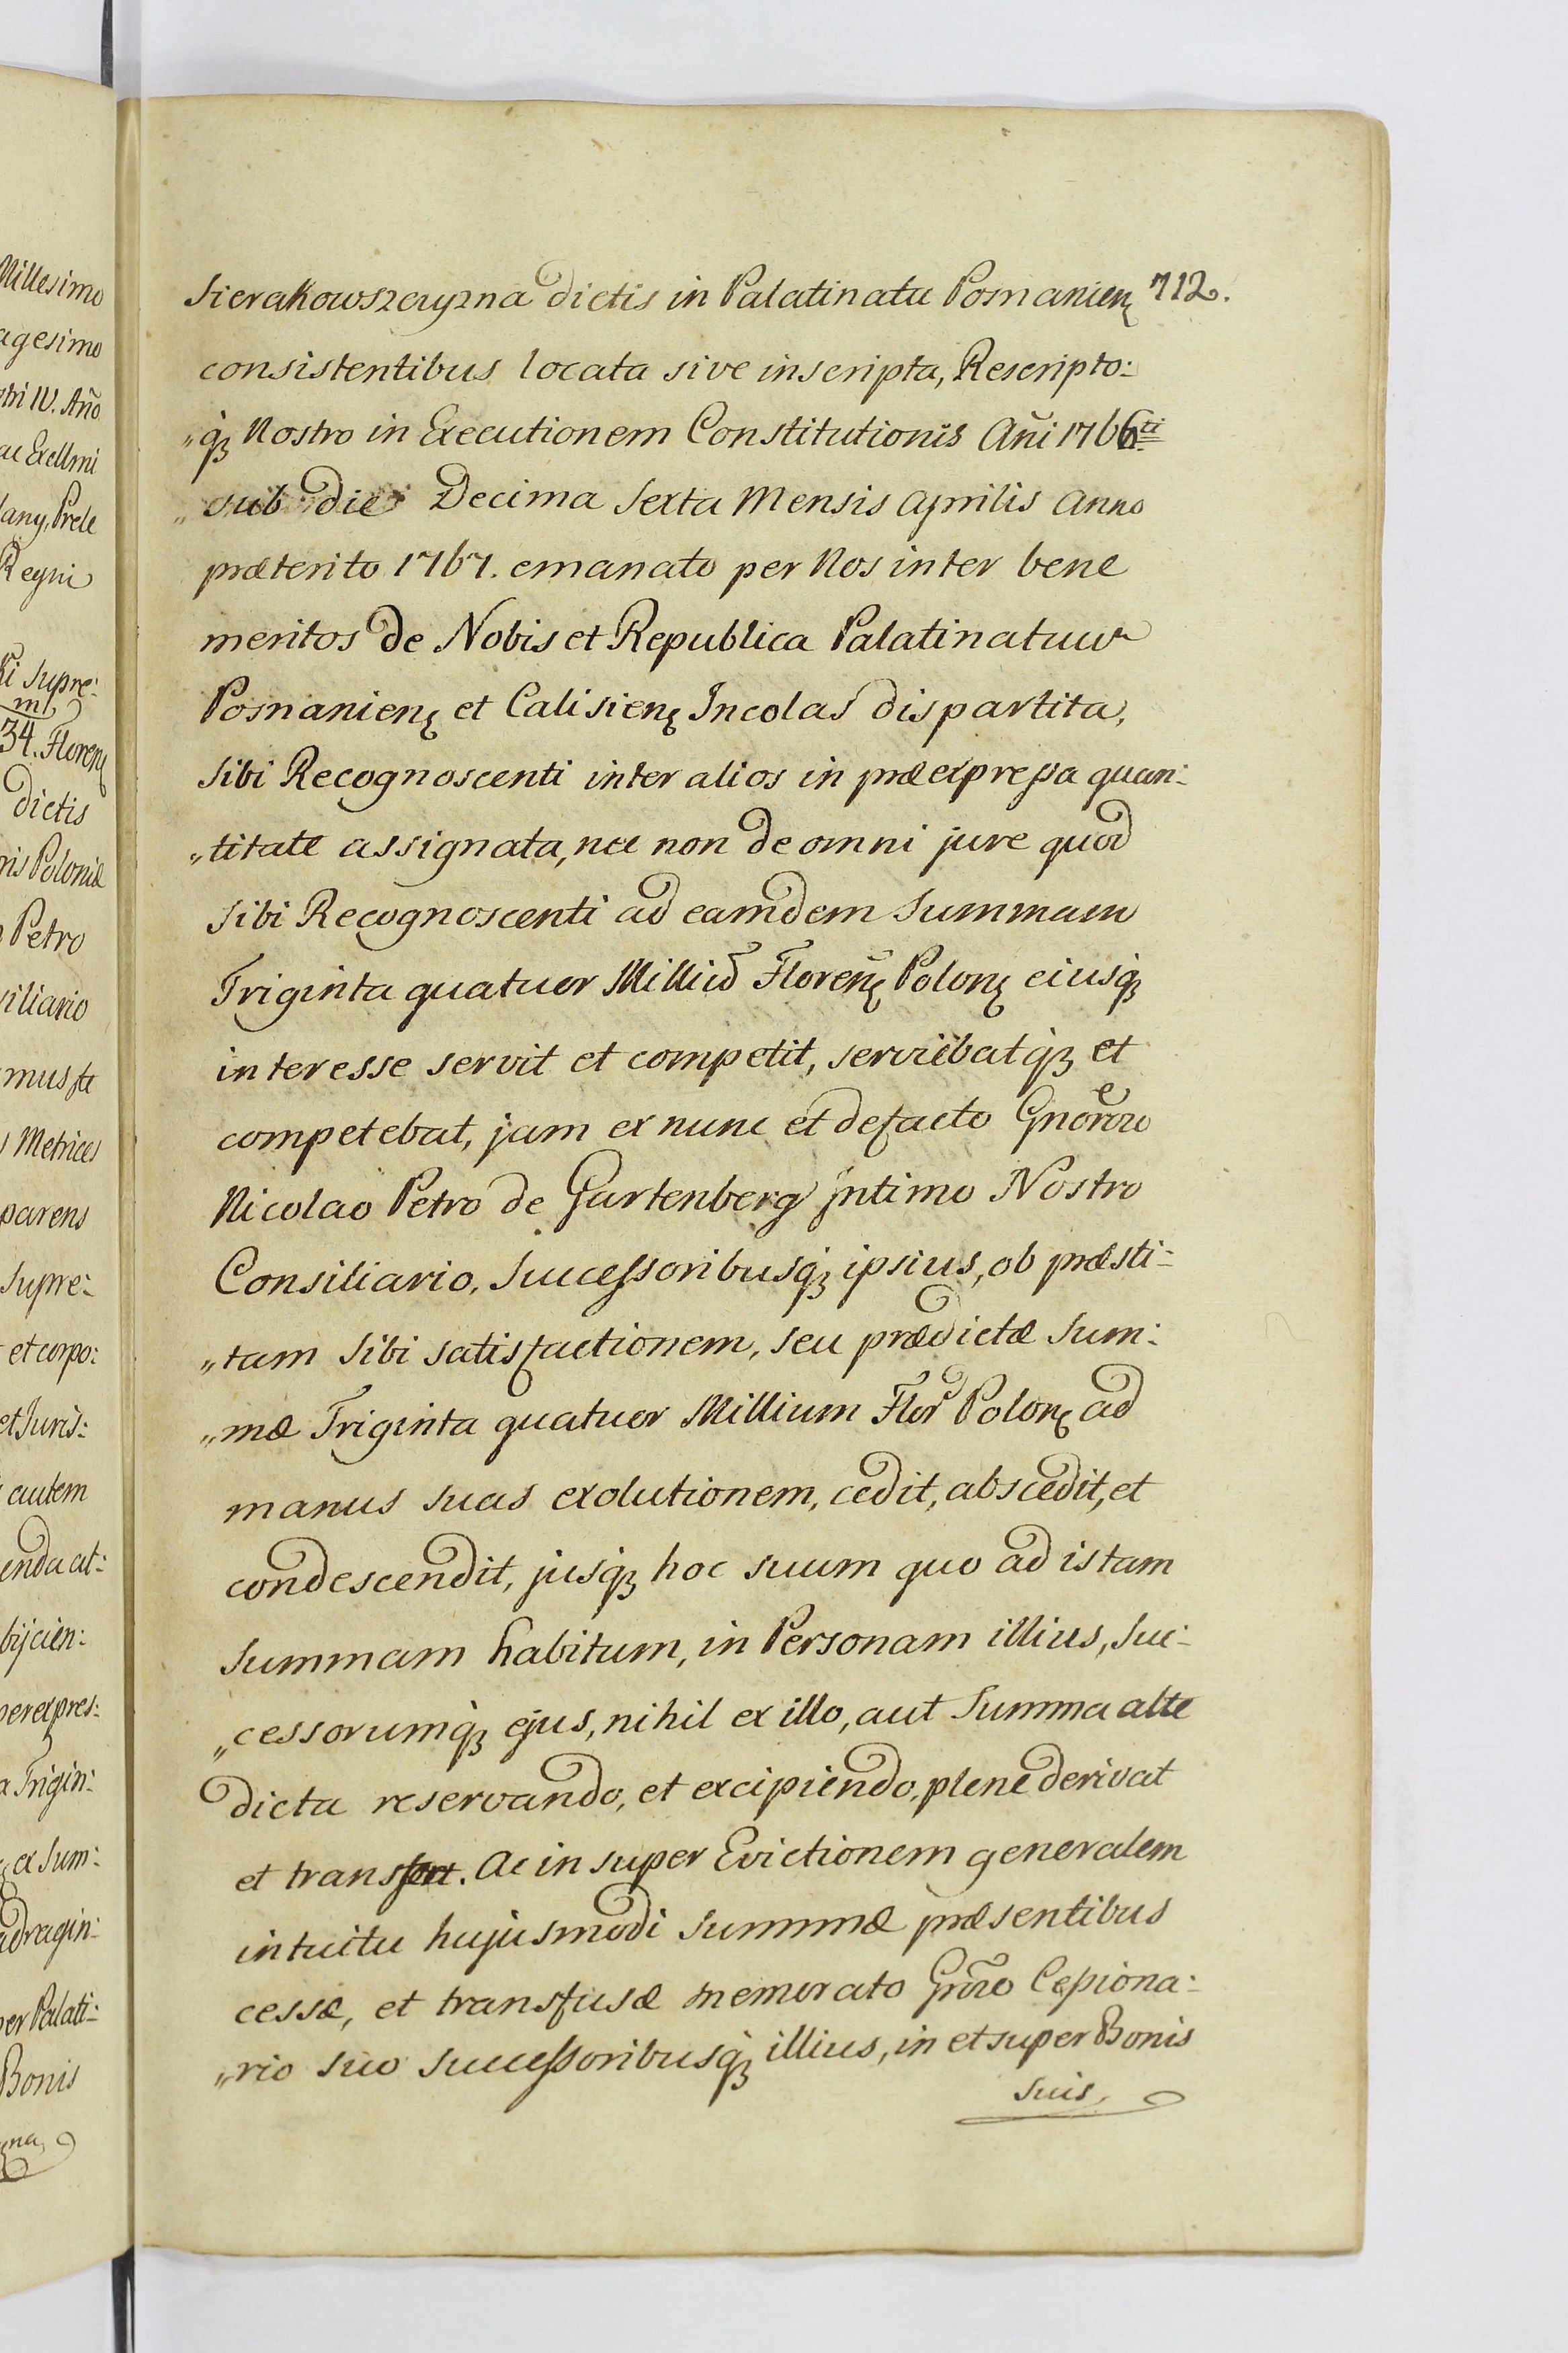 712.
Sierakowszczyzna dictis in Palatinatu Posnanień
consistentibus locata sive inscripta, Rescripto:
„q́ꝫ Nostro in Executionem Constitutionis Añi 1766ti
„sub die Decima Sexta Mensis Aprilis Anno
præterito 1767. emanato per Nos inter bene
meritos de Nobis et Republica Palatinatuu
Posnanienȩ et Calisienȩ Incolas dispartita,
Sibi Recognoscenti inter alios in præexpressa quan:
„titate assignata, nec non de omni jure quod
Sibi Recognoscenti ad eamdem Summam
Triginta quatuor Milliū Floreñȩ Polonȩ eiusq́ꝫ
interesse servit et competit, serviebatq́ꝫ et
competebat, jam ex nunc et defacto Gnőrozo
Nicolao Petro de Gartenberg Intimo Nostro
Consiliario, Successoribusq́ꝫ ipsius, ob præsti-
„tam Sibi satisfactionem, seu prædictæ Sum:
„mæ Triginta quatuor Millium Florꝰ Polonȩ ad
manus suas exolutionem, cedit, abscedit, et
condescendit, jusq́ꝫ hoc suum quo ad istam
Summam habitum, in Personam illius, Suc-
„cessorumq́ꝫ ejus, nihil ex illo, aut Summa alte
dicta reservando, et excipiendo, plene derivat
et transfert. Ac in super Evictionem generalem
intuitu hujusmodi Summæ præsentibus
cessæ, et transfusæ memorato Gñrzo Cessiona:
„rio suo Successoribusq́ꝫ illius, in et super Bonis
Suis,
Millesimo
agesimo
stri IV. Año
ac Excllmi
any, Prele
Regni
Ki Supre:
m
34. Florenȩ
dictis
ris Poloniæ
Petro
iliario
mus fa
Metrices
parens
Supre:
et corpo:
et Juris:
autem
enda at:
bijcien:
per expres:
a Trigin:
ex Sum:
adragin:
per Palati:
Bonis
na,